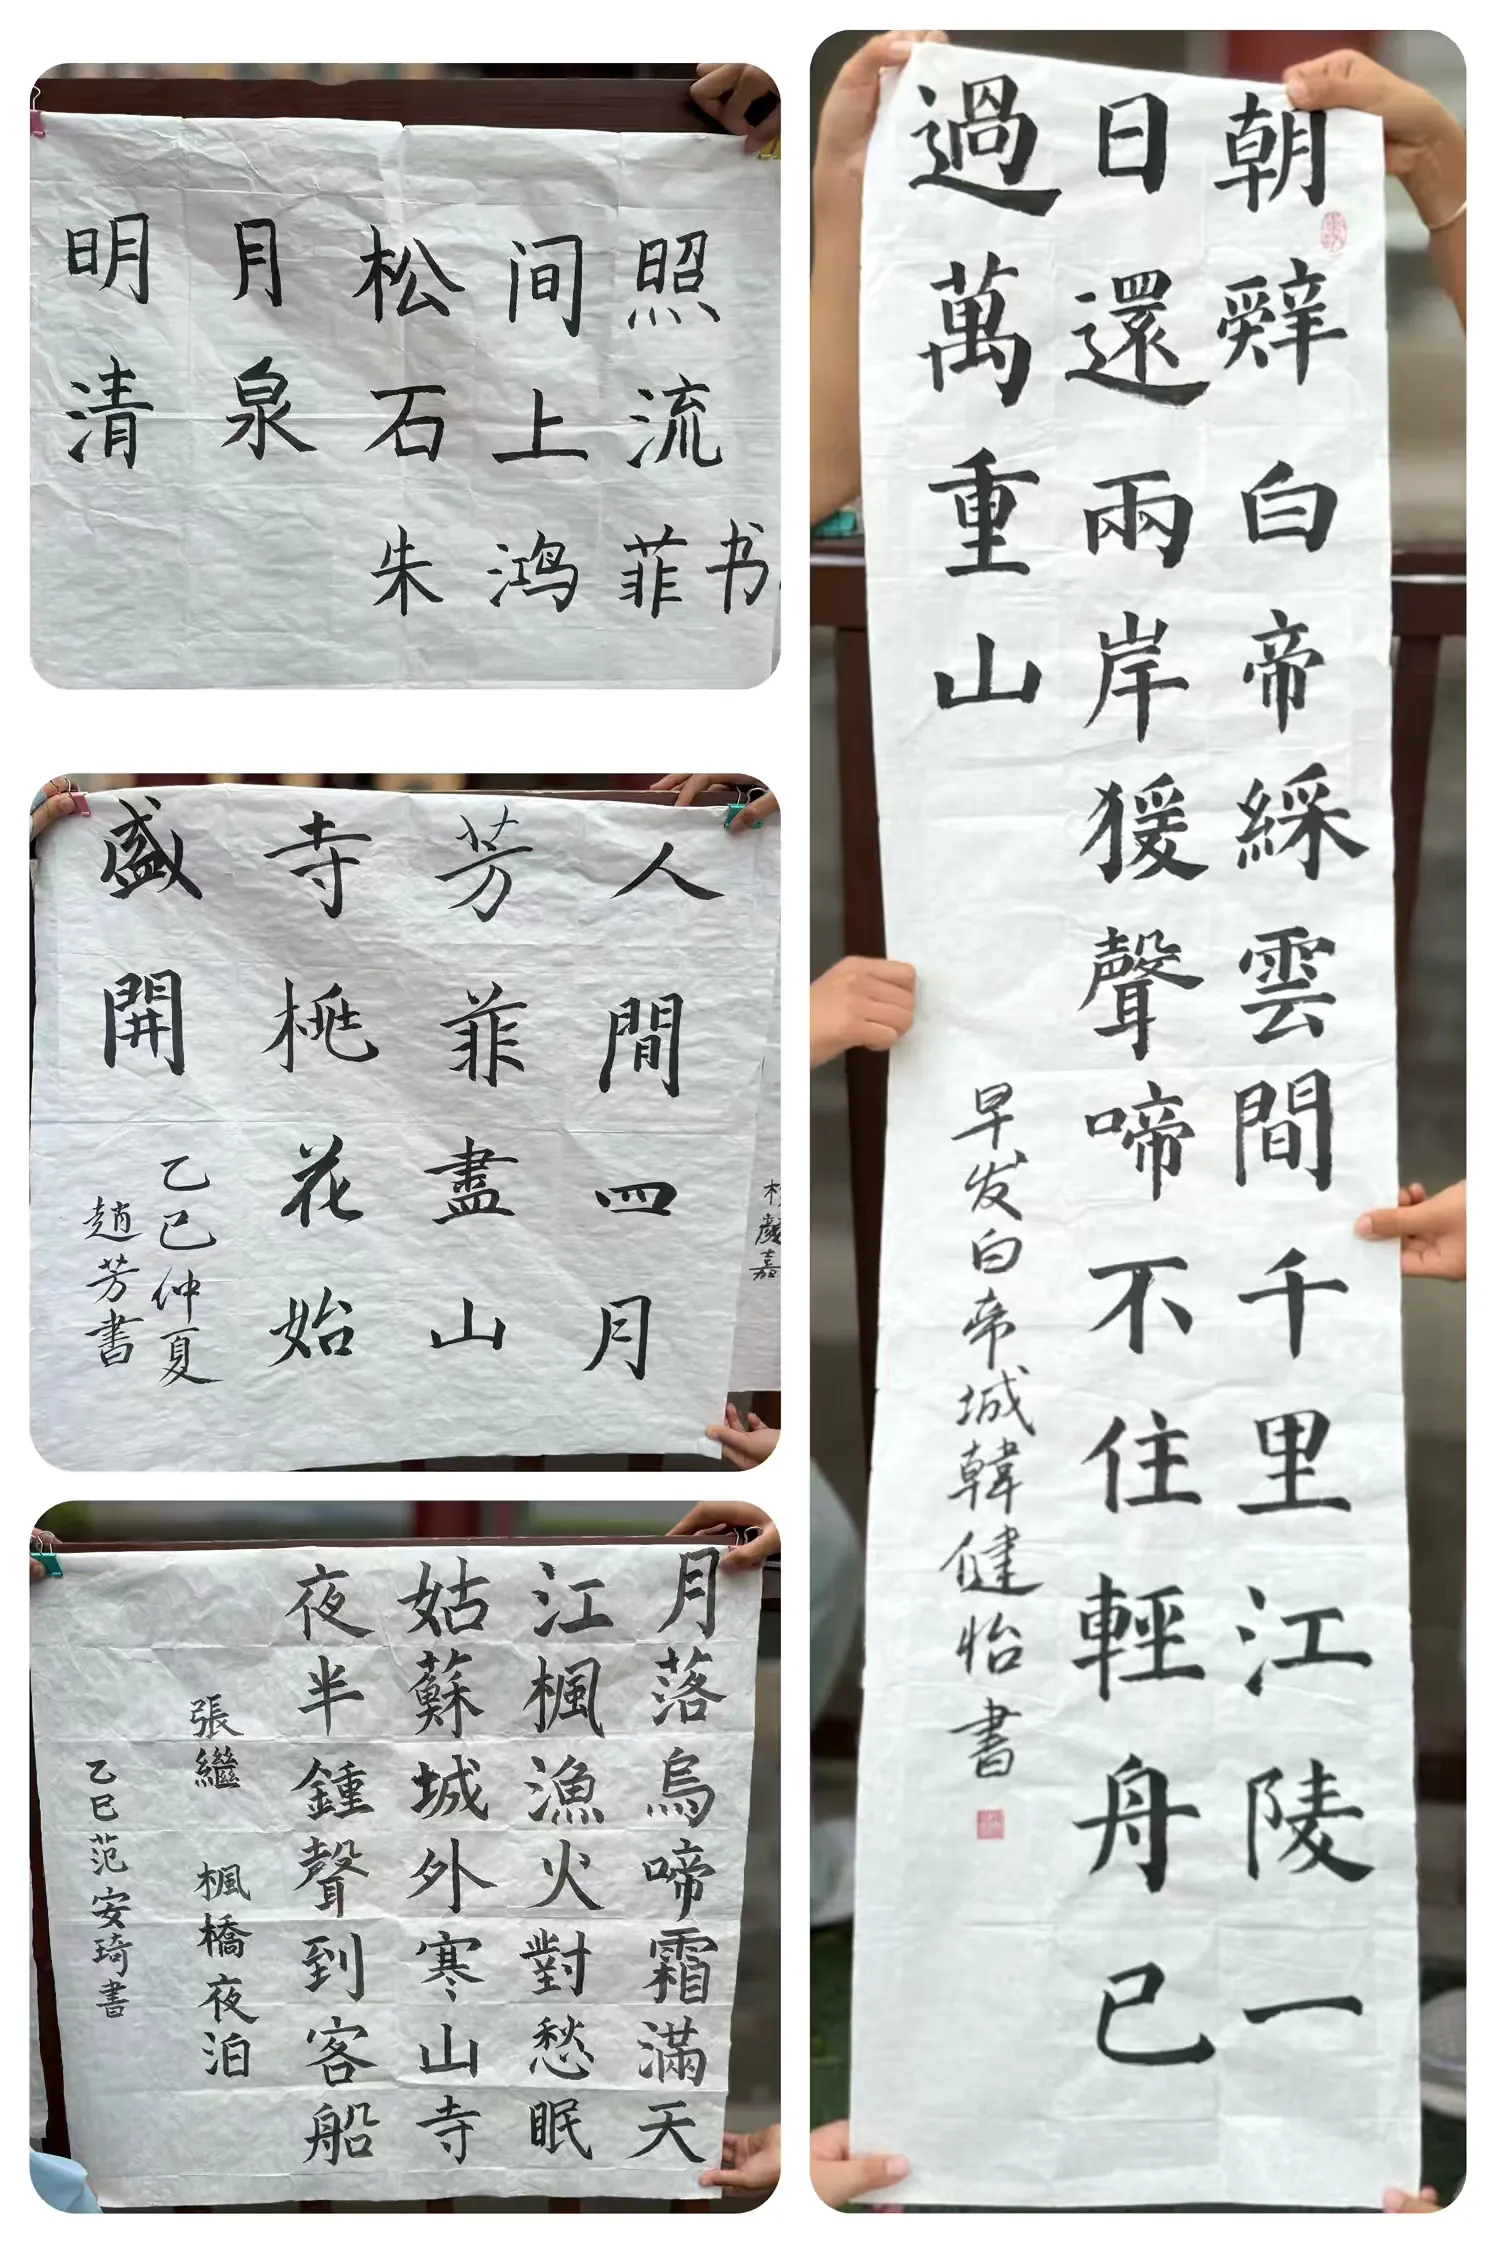 明月松间照
清泉石上流
朱鸿菲书
人間四月
芳菲盡山
寺桃花始
盛開
乙巳仲夏
趙芳書
顏嘉
月落烏啼霜滿天
江楓漁火對愁眠
姑蘇城外寒山寺
夜半鍾聲到客船
張繼 楓橋夜泊
乙巳范安琦書
朝辤白帝綵雲間千里江陵一
日還兩岸猨聲啼不住輕舟已
過萬重山
早发白帝城韓健怡書